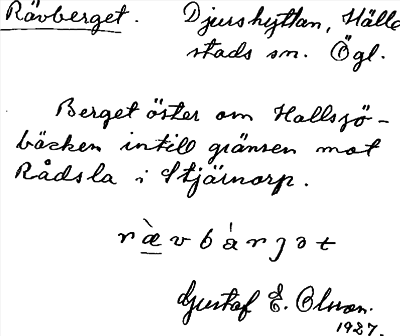 Rävberget. Djurshyttan, Hälle
stads sn. Ögl.
Berget öster om Hallsjö-
bäcken intill gränsen mot
Rådsla i Stjärnorp.
ræ̀vbárjət
Gustaf E. Olsson.
1927.